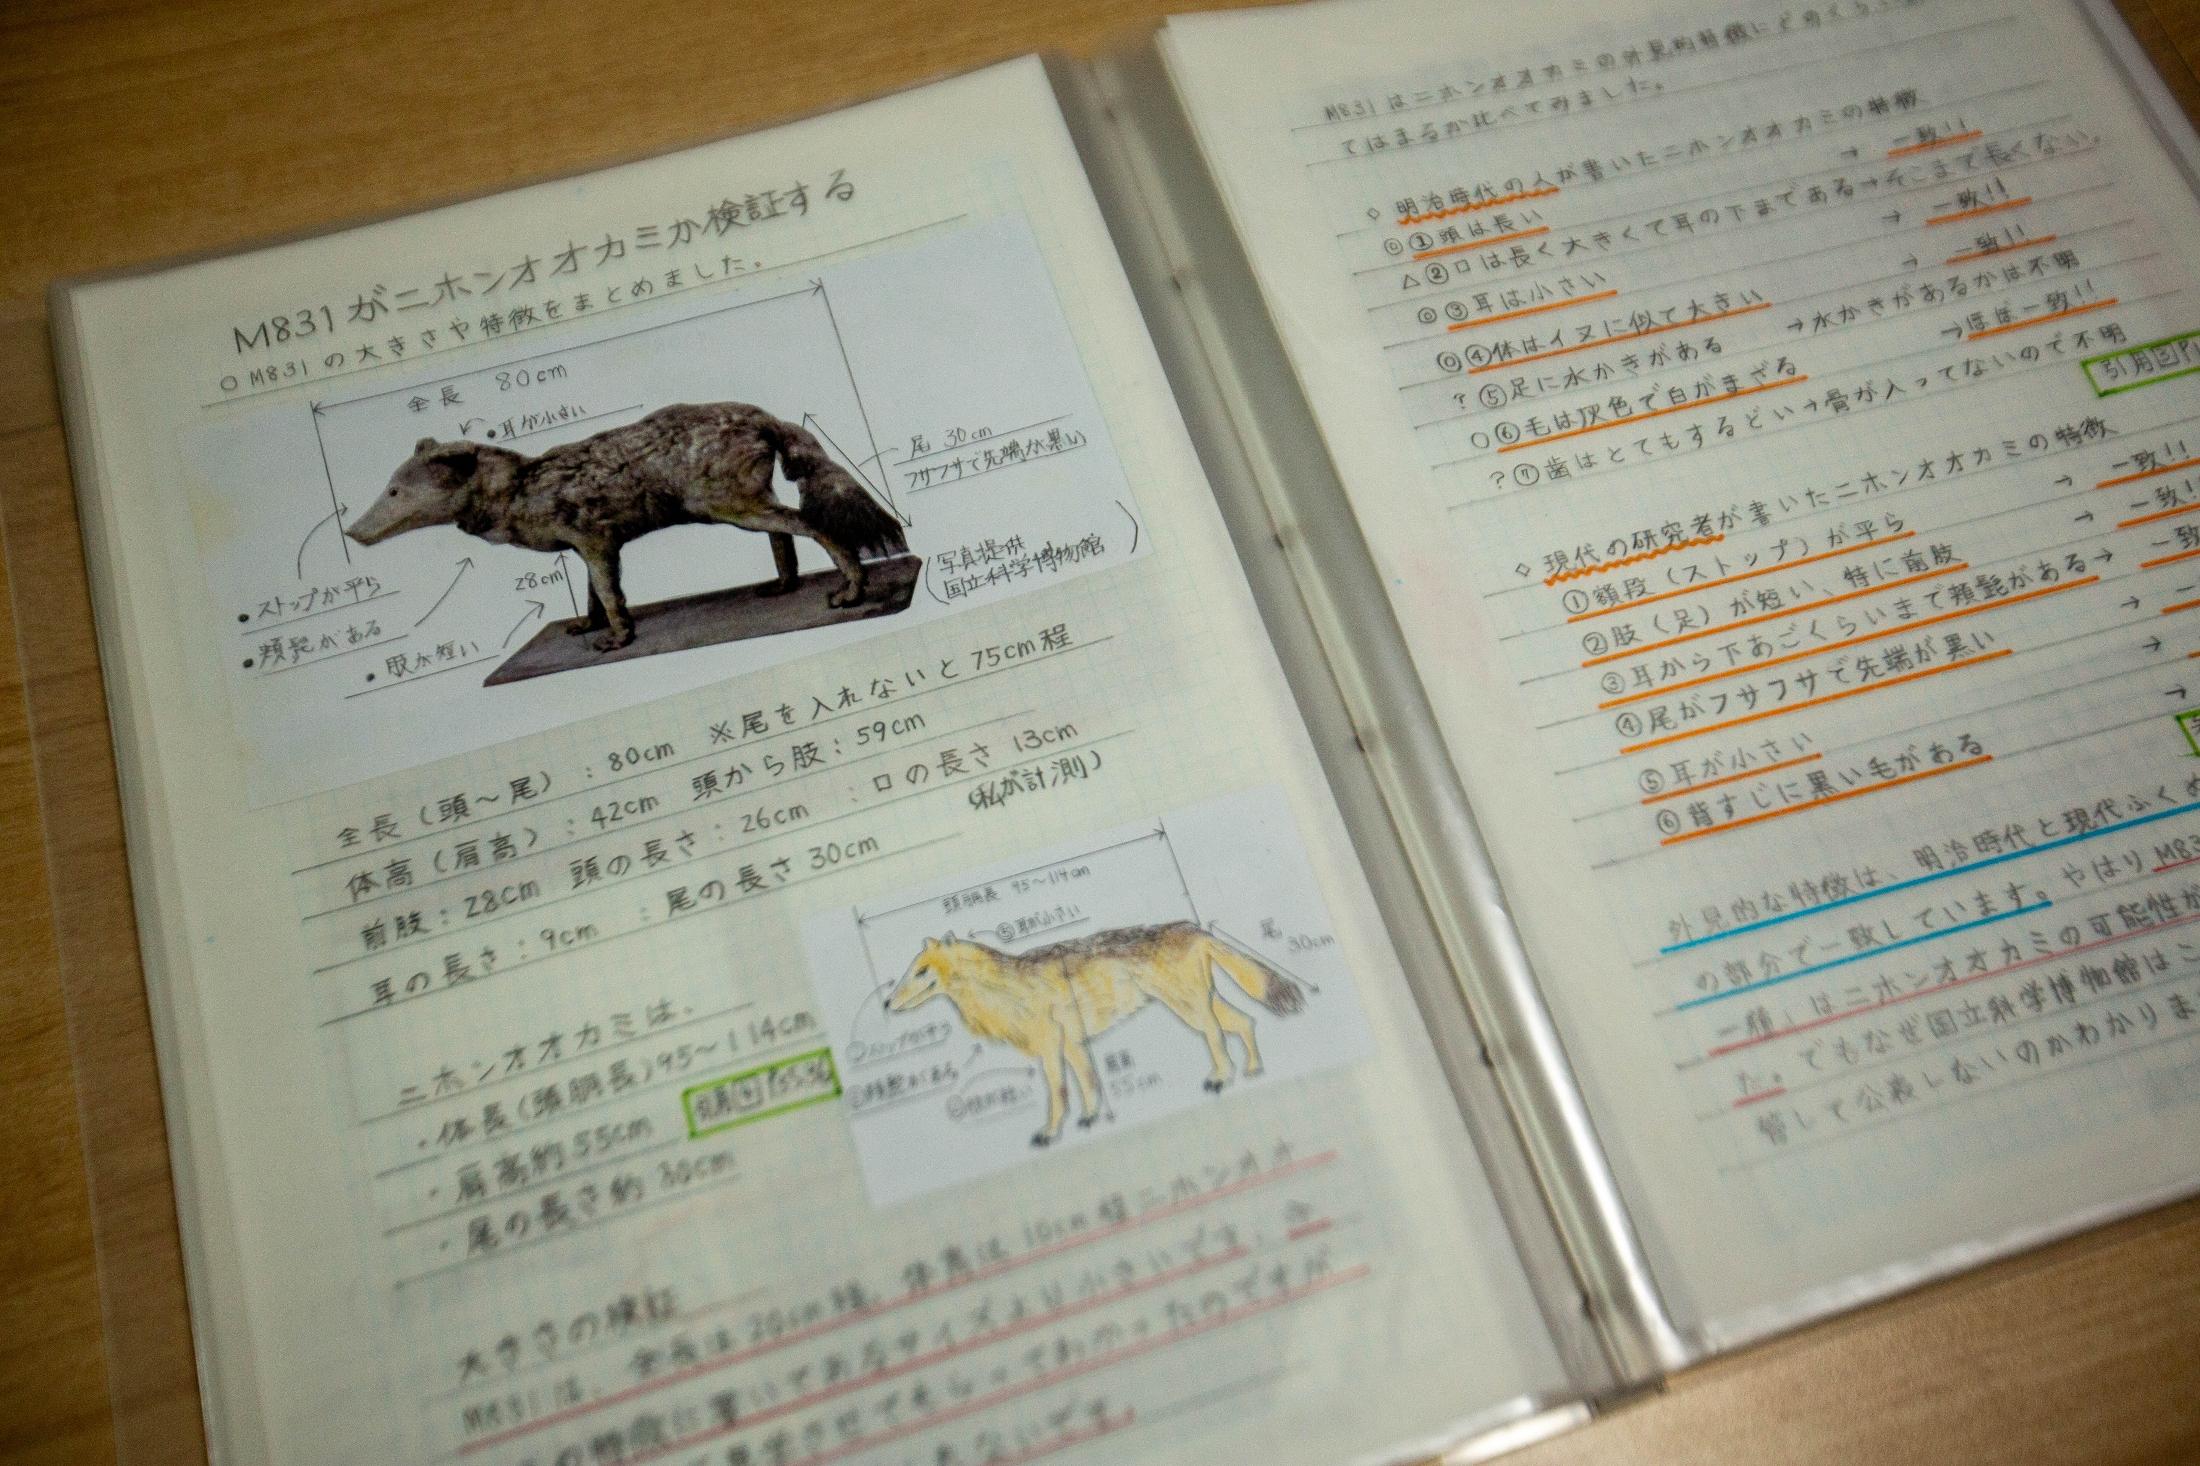 M831がニホンオオカミか検証する
○M831の大きさや特徴をまとめました。
全長 80cm
•耳が小さい
尾 30cm
フサフサで先端が黒い
(写真提供
国立科学博物館)
28cm
•ストップが平ら
•頬髭がある
•肢が短い
全長(頭〜尾):80cm ※尾を入れないと75cm程
体高(肩高):42cm 頭から肢:59cm
前肢:28cm 頭の長さ:26cm :口の長さ 13cm
耳の長さ:9cm :尾の長さ 30cm (私が計測)
頭胴長 95〜114cm
⑤耳が小さい
尾
30cm
肩高
55cm
ニホンオオカミは、
・体長(頭胴長)95〜114cm
・肩高約55cm
・尾の長さ約30cm
大きさの検証
M831は、全長は20cm程、体高は10cm程ニホンオオ
に書いてあるサイズより小さいです。
見学させてもらってわかったのですが
M831はニホンオオカミの外見的特徴にどのくらい
てはまるか比べてみました。
◇明治時代の人が書いたニホンオオカミの特徴
◎①頭は長い → 一致!!
△②口は長く大きくて耳の下まである→そこまで長くない。
◎③耳は小さい → 一致!!
◎④体はイヌに似て大きい → 一致!!
?⑤足に水かきがある →水かきがあるかは不明
○⑥毛は灰色で白がまざる →ほぼ一致!!
?⑦歯はとてもするどい→骨が入ってないので不明
引用③P1
◇現代の研究者が書いたニホンオオカミの特徴
①額段(ストップ)が平ら → 一致!!
②肢(足)が短い、特に前肢 → 一致!!
③耳から下あごくらいまで頬髭がある→ 一致
④尾がフサフサで先端が黒い →
⑤耳が小さい →
⑥背すじに黒い毛がある →
外見的な特徴は、明治時代と現代ふくめ
の部分で一致しています。やはりM83
一種」はニホンオオカミの可能性が
た。でもなぜ国立科学博物館はこ
管して公表しないのかわかりま